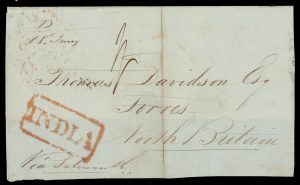 Thomas Davidson Esq
Forres
North Britain
INDIA
Via Falmouth